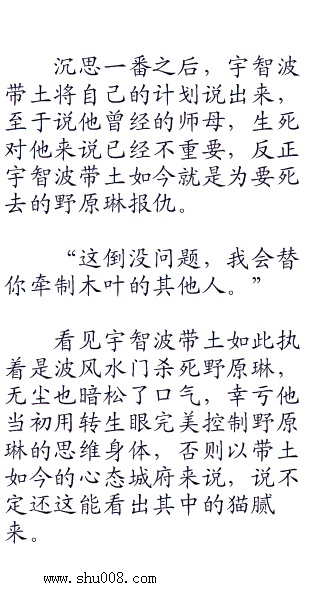 沉思一番之后，宇智波
带土将自己的计划说出来，
至于说他曾经的师母，生死
对他来说已经不重要，反正
宇智波带土如今就是为要死
去的野原琳报仇。
“这倒没问题，我会替
你牵制木叶的其他人。”
看见宇智波带土如此执
着是波风水门杀死野原琳，
无尘也暗松了口气，幸亏他
当初用转生眼完美控制野原
琳的思维身体，否则以带土
如今的心态城府来说，说不
定还这能看出其中的猫腻
来。
www.shu008.com